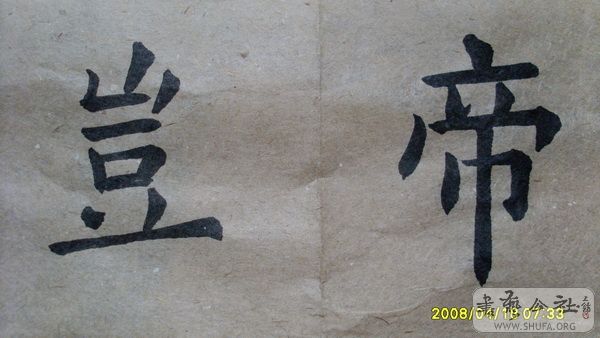 帝
豈
2008/04/19 07:33
書藝公社
WWW.SHUFA.ORG